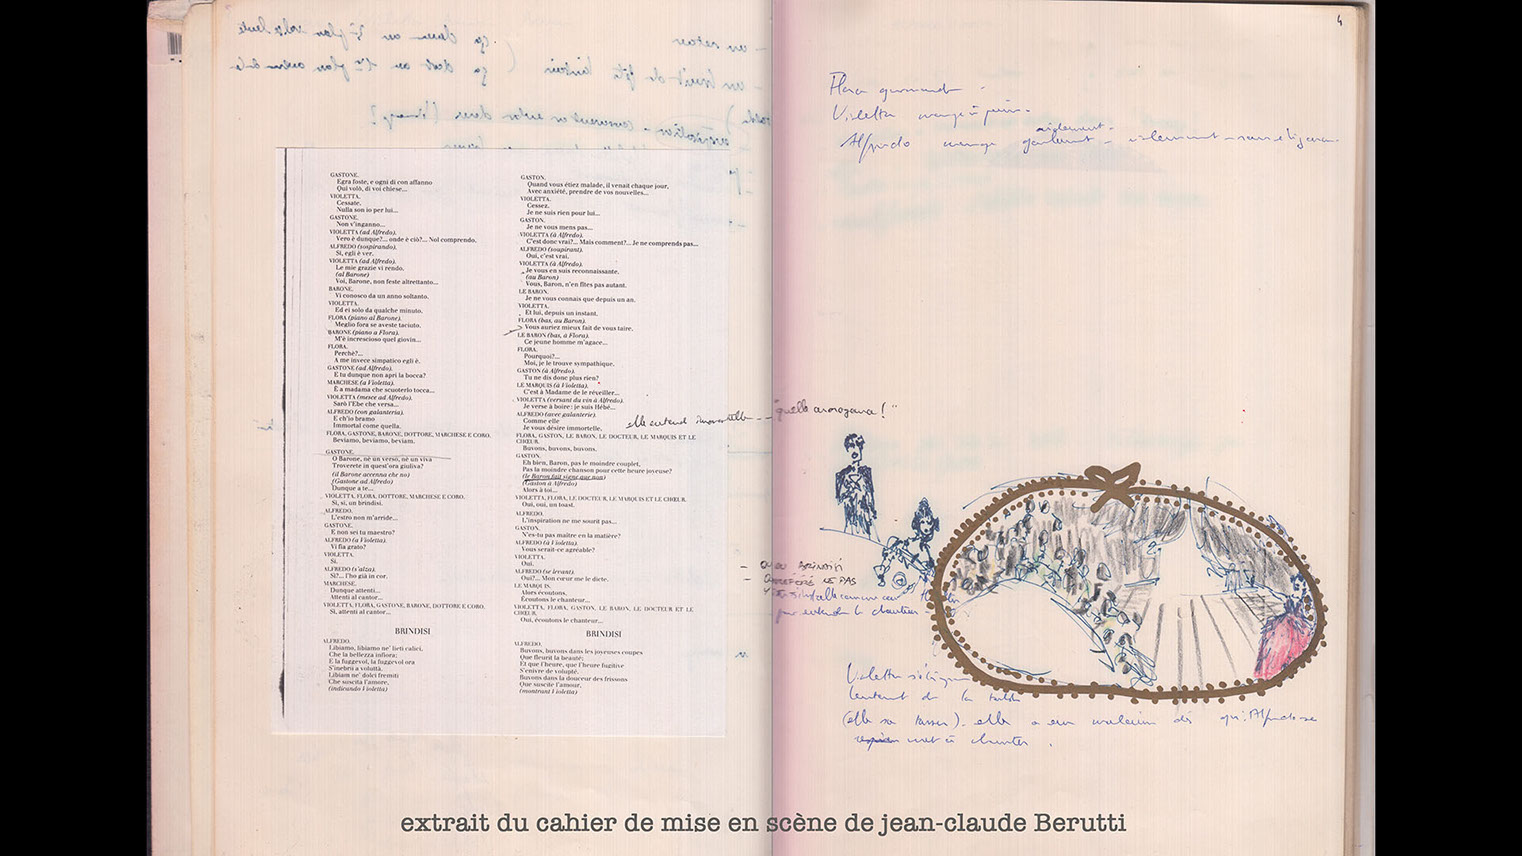 GASTONE.
Egra foste, e ogni dì con affanno
Qui volò, di voi chiese...
VIOLETTA.
Cessate.
Nulla son io per lui...
GASTONE.
Non v'inganno...
VIOLETTA (ad Alfredo).
Vero è dunque?... onde è ciò?... Nol comprendo.
ALFREDO (sospirando).
Sì, egli è ver.
VIOLETTA (ad Alfredo).
Le mie grazie vi rendo.
(al Barone)
Voi, Barone, non feste altrettanto...
BARONE.
Vi conosco da un anno soltanto.
VIOLETTA.
Ed ei solo da qualche minuto.
FLORA (piano al Barone).
Meglio fora se aveste taciuto.
BARONE (piano a Flora).
M'è increscioso quel giovin...
FLORA.
Perchè?...
A me invece simpatico egli è.
GASTONE (ad Alfredo).
E tu dunque non apri la bocca?
MARCHESE (a Violetta).
È a madama che scuoterlo tocca...
VIOLETTA (mesce ad Alfredo).
Sarò l'Ebe che versa...
ALFREDO (con galanteria).
E ch'io bramo
Immortal come quella.
FLORA, GASTONE, BARONE, DOTTORE, MARCHESE E CORO.
Beviamo, beviamo, beviam.
GASTONE.
O Barone, nè un verso, nè un viva
Troverete in quest'ora giuliva?
(il Barone accenna che no)
(Gastone ad Alfredo)
Dunque a te...
VIOLETTA, FLORA, DOTTORE, MARCHESE E CORO.
Sì, sì, un brindisi.
ALFREDO.
L'estro non m'arride...
GASTONE.
E non sei tu maestro?
ALFREDO (a Violetta).
Vi fia grato?
VIOLETTA.
Sì.
ALFREDO (s'alza).
Sì?... l'ho già in cor.
MARCHESE.
Dunque attenti...
Attenti al cantor...
VIOLETTA, FLORA, GASTONE, BARONE, DOTTORE E CORO.
Sì, attenti al cantor...
BRINDISI
ALFREDO.
Libiamo, libiamo ne' lieti calici,
Che la bellezza infiora;
E la fuggevol, la fuggevol ora
S'inebrii a voluttà.
Libiam ne' dolci fremiti
Che suscita l'amore,
(indicando Violetta)
GASTON.
Quand vous étiez malade, il venait chaque jour,
Avec anxiété, prendre de vos nouvelles...
VIOLETTA.
Cessez.
Je ne suis rien pour lui...
GASTON.
Je ne vous mens pas...
VIOLETTA (à Alfredo).
C'est donc vrai?... Mais comment?... Je ne comprends pas...
ALFREDO (soupirant).
Oui, c'est vrai.
VIOLETTA (à Alfredo).
Je vous en suis reconnaissante.
(au Baron)
Vous, Baron, n'en fîtes pas autant.
LE BARON.
Je ne vous connais que depuis un an.
VIOLETTA.
Et lui, depuis un instant.
FLORA (bas, au Baron).
Vous auriez mieux fait de vous taire.
LE BARON (bas, à Flora).
Ce jeune homme m'agace...
FLORA.
Pourquoi?...
Moi, je le trouve sympathique.
GASTON (à Alfredo).
Tu ne dis donc plus rien?
LE MARQUIS (à Violetta).
C'est à Madame de le réveiller...
VIOLETTA (versant du vin à Alfredo).
Je verse à boire: je suis Hébé...
ALFREDO (avec galanterie).
Comme elle
Je vous désire immortelle.
FLORA, GASTON, LE BARON, LE DOCTEUR, LE MARQUIS ET LE
CHŒUR.
Buvons, buvons, buvons.
GASTON.
Eh bien, Baron, pas le moindre couplet,
Pas la moindre chanson pour cette heure joyeuse?
(le Baron fait signe que non)
(Gaston à Alfredo)
Alors à toi...
VIOLETTA, FLORA, LE DOCTEUR, LE MARQUIS ET LE CHŒUR.
Oui, oui, un toast.
ALFREDO.
L'inspiration ne me sourit pas...
GASTON.
N'es-tu pas maître en la matière?
ALFREDO (à Violetta).
Vous serait-ce agréable?
VIOLETTA.
Oui.
ALFREDO (se levant).
Oui?... Mon cœur me le dicte.
LE MARQUIS.
Alors écoutons,
Écoutons le chanteur...
VIOLETTA, FLORA, GASTON, LE BARON, LE DOCTEUR ET LE
CHŒUR.
Oui, écoutons le chanteur...
BRINDISI
ALFREDO.
Buvons, buvons dans les joyeuses coupes
Que fleurit la beauté;
Et que l'heure, que l'heure fugitive
S'enivre de volupté.
Buvons dans la douceur des frissons
Que suscite l'amour,
(montrant Violetta)
elle entend immortelle - - "quelle arrogance!"
4
Flora gourmande -
Violetta mange à peine.
Alfredo mange
pour entendre le chanteur -
Violetta s'éloigne
lentement de la table
(elle va danser). elle a un malaise dès qu'Alfredo se
met à chanter.
extrait du cahier de mise en scène de jean-claude Berutti